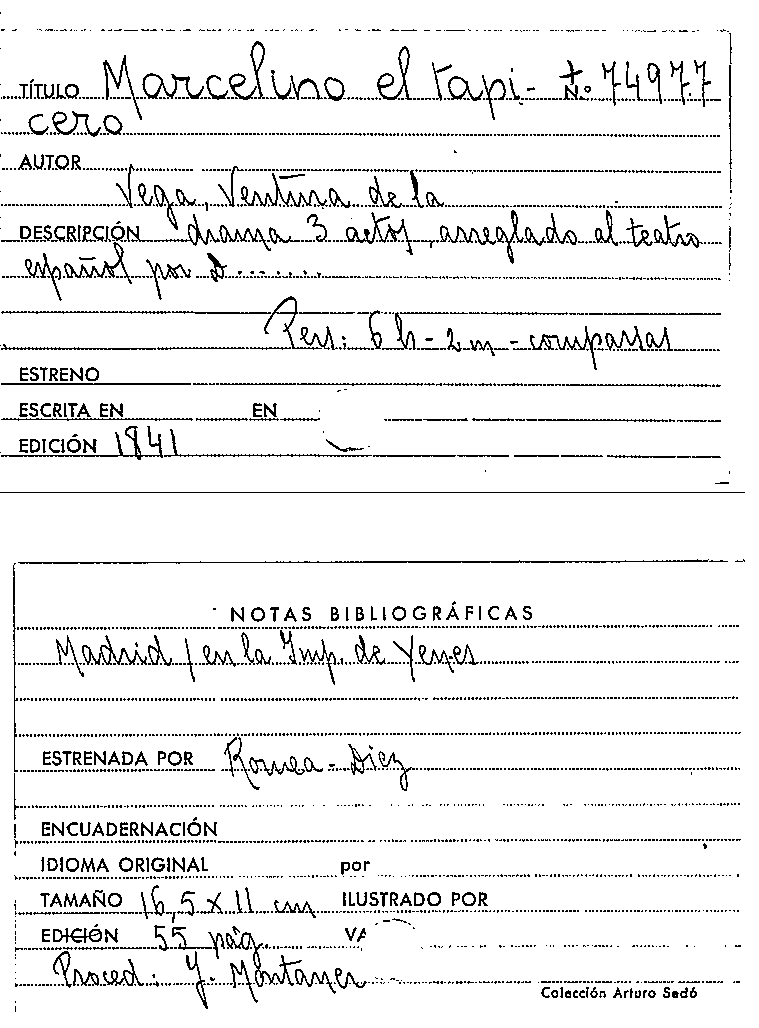 TÍTULO Marcelino el tapi- + N.º 74977
cero
AUTOR
Vega, Ventura de la
DESCRIPCIÓN drama 3 actos, arreglado al teatro
español por D.......
Pers: 6 h - 2 m - comparsas
ESTRENO
ESCRITA EN EN
EDICIÓN 1841
NOTAS BIBLIOGRÁFICAS
Madrid / en la Imp. de Yenes
ESTRENADA POR Romea - Diez
ENCUADERNACIÓN
IDIOMA ORIGINAL por
TAMAÑO 16,5 x 11 cm ILUSTRADO POR
EDICIÓN 55 pág. VA
Proced: J. Montaner
Colección Arturo Sedó